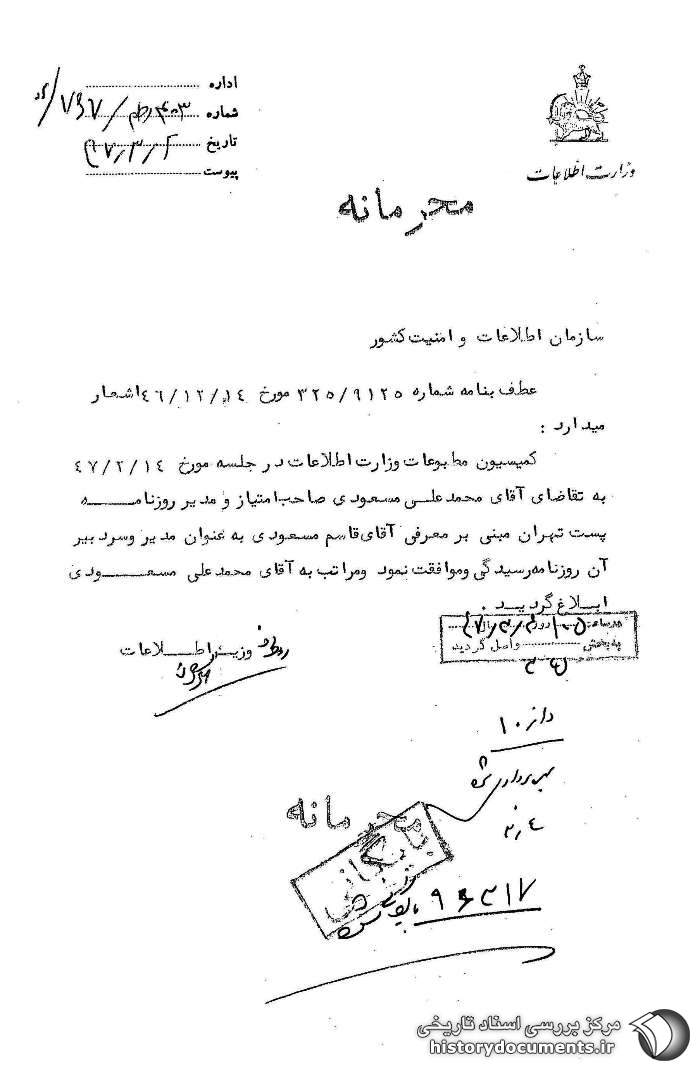 اداره
شماره
تاریخ
پیوست
وزارت اطلاعات
محرمانه
سازمان اطلاعات و امنیت کشور
عطف بنامه شماره ۳۲۵/۹۱۲۵ مورخ ۴۶/۱۲/۱۴ اشعار
میدارد :
کمیسیون مطبوعات وزارت اطلاعات در جلسه مورخ ۴۷/۲/۱۴
به تقاضای آقای محمدعلی مسعودی صاحب امتیاز و مدیر روزنامه
پست تهران مبنی بر معرفی آقای قاسم مسعودی به عنوان مدیر وسردبیر
آن روزنامه رسیدگی وموافقت نمود ومراتب به آقای محمدعلی مسعودی
ابلاغ گردید .
به بخش واصل گردید
وزیر اطلاعات
محرمانه
بایگانی
۹۶۳۱۷
مرکز بررسی اسناد تاریخی
historydocuments.ir